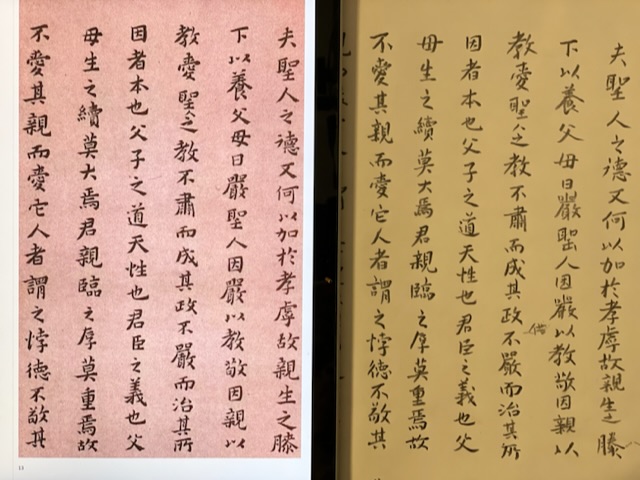 夫聖人之德又何以加於孝虖故親生之膝
下以養父母日嚴聖人因嚴以教敬因親以
教愛聖人之教不肅而成其政不嚴而治其所
因者本也父子之道天性也君臣之義也父
母生之續莫大焉君親臨之厚莫重焉故
不愛其親而愛它人者謂之悖德不敬其
夫聖人之德又何以加於孝虖故親生之膝
下以養父母日嚴聖人因嚴以教敬因親以
教愛聖人之教不肅而成其政不嚴而治其所
因者本也父子之道天性也君臣之義也父
母生之續莫大焉君親臨之厚莫重焉故
不愛其親而愛它人者謂之悖德不敬其